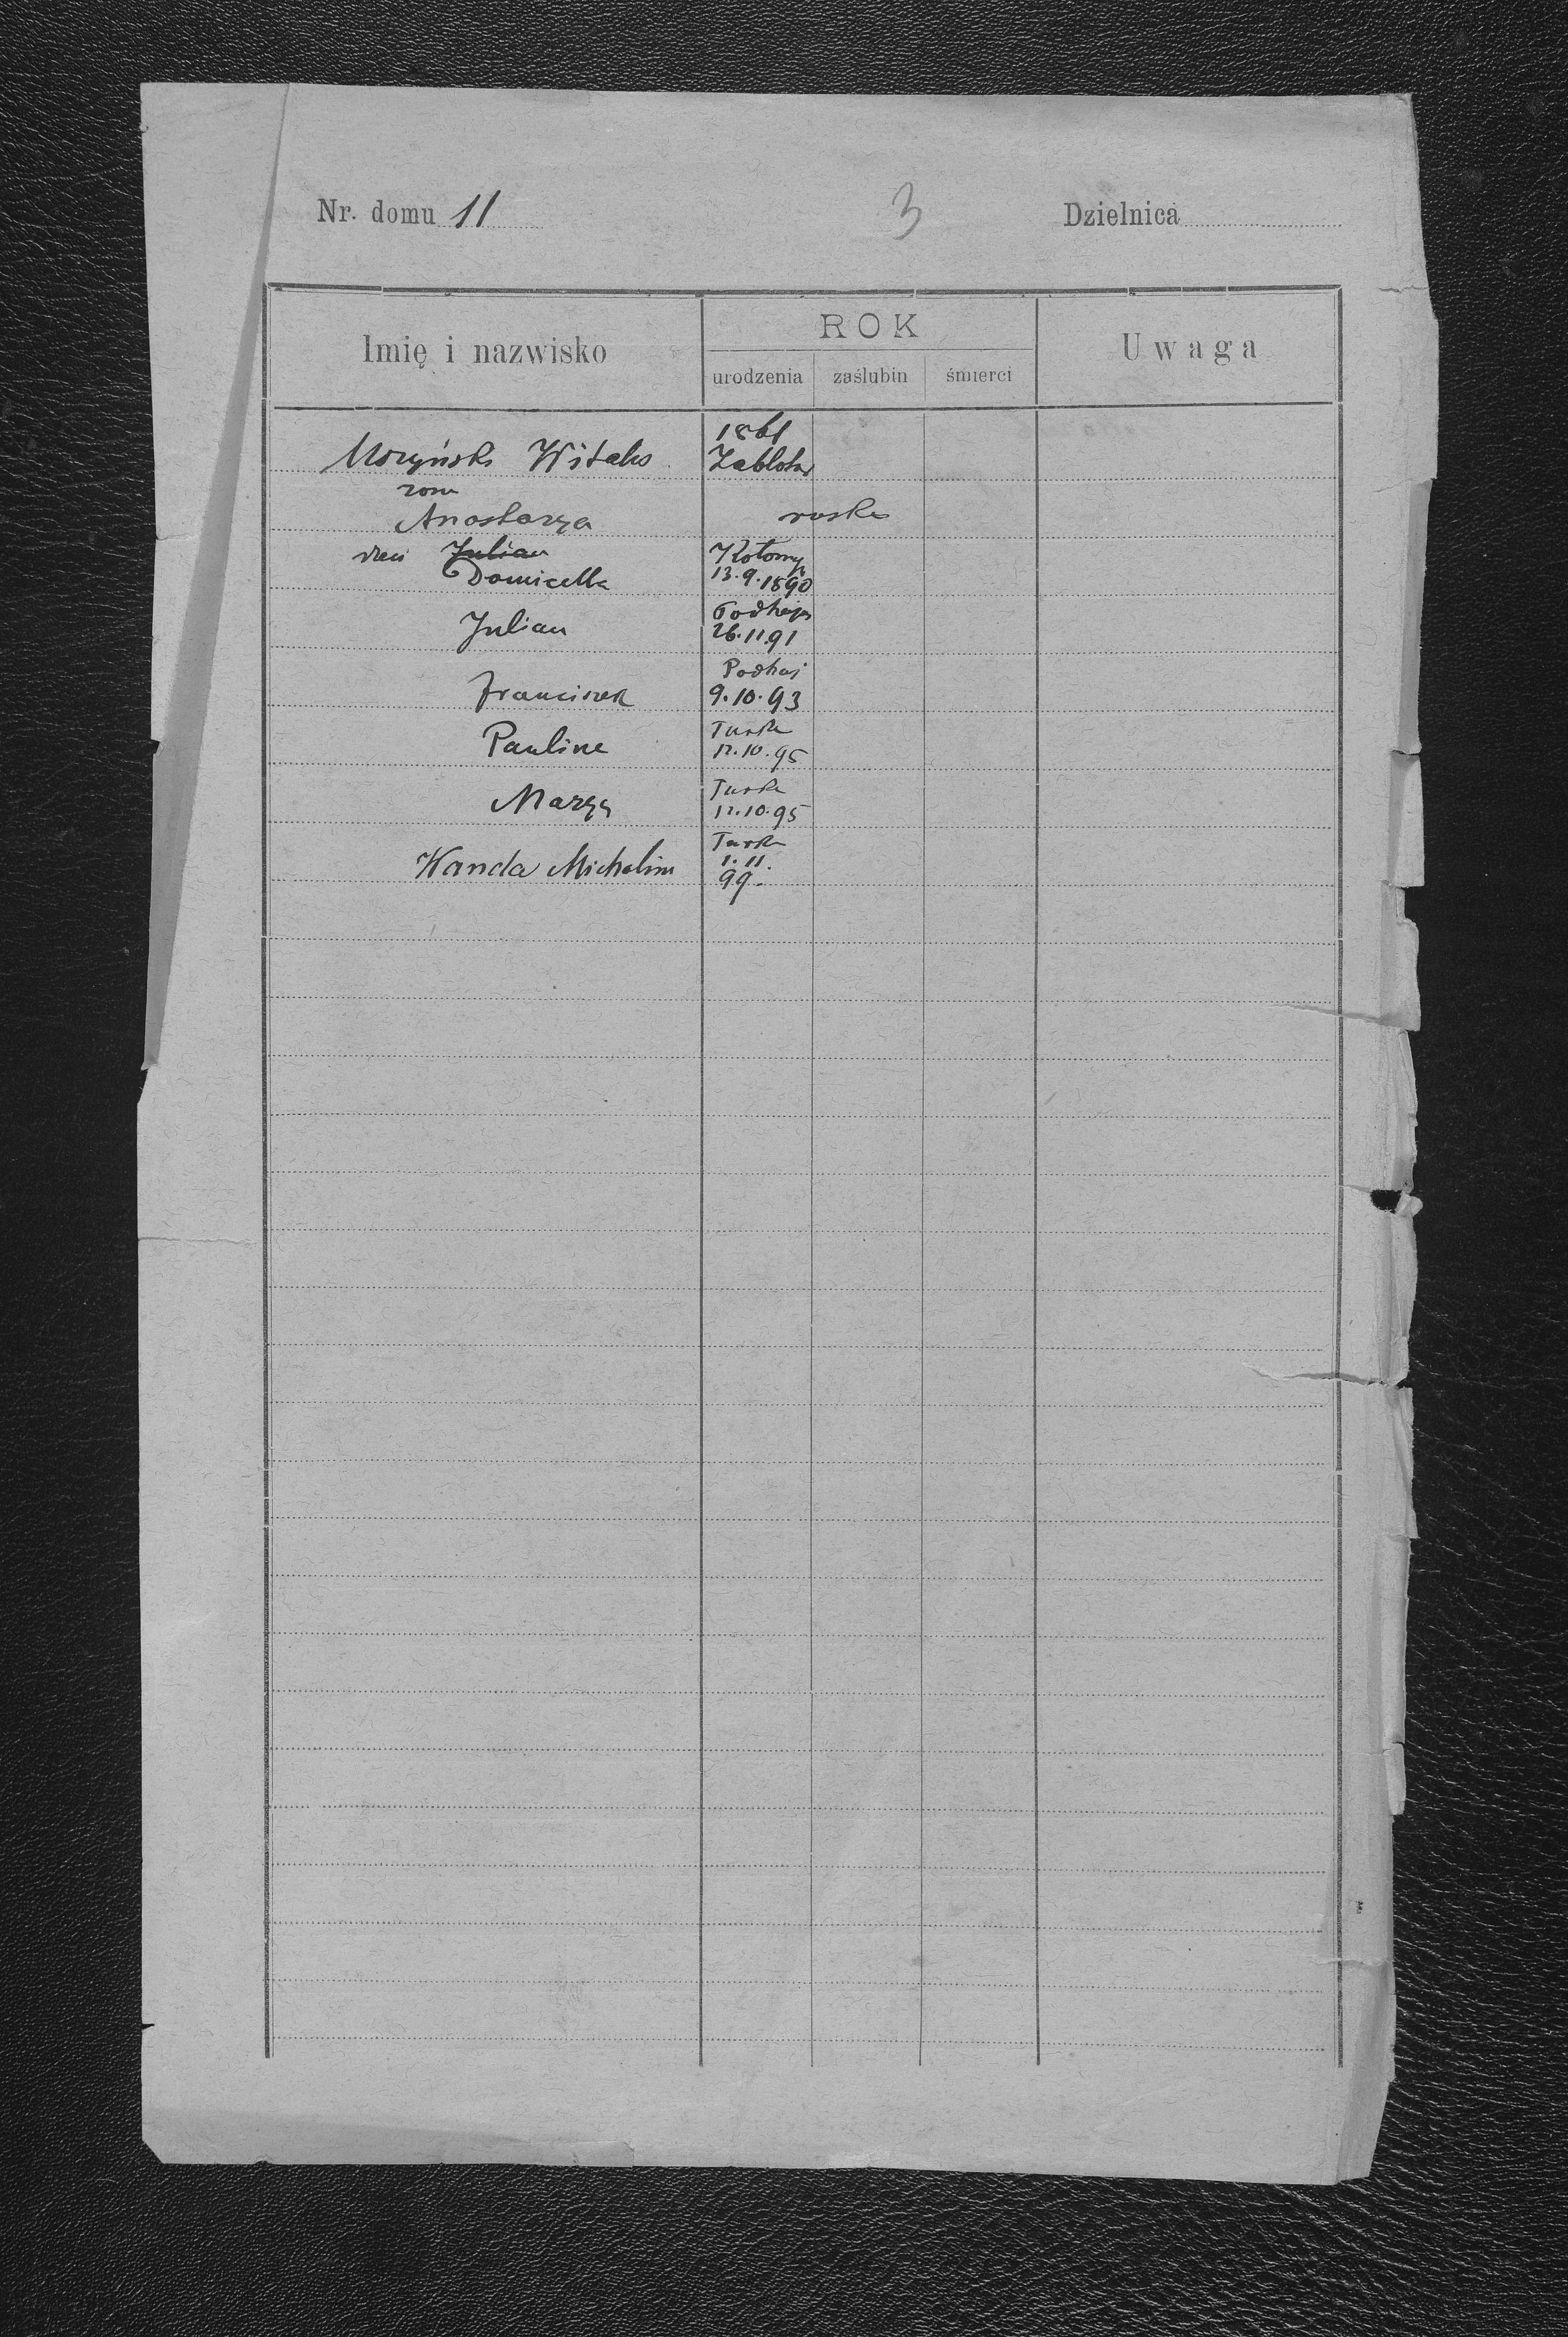 Nr. domu 11 3 Dzielnica
Imię i nazwisko ROK Uwaga
urodzenia zaślubin śmierci
1861
Witalis Zablotow
żona
Anastazya ruska
dzieci Julian Kołomyja
Domicella 13.9.1890
Podhajce
Julian 26.11.91
Podhaj
Franciszek 9.10.93
Turka
Paulina 12.10.95
Turka
Marya 12.10.95
Turka
Wanda Michalina 1.11.
99.